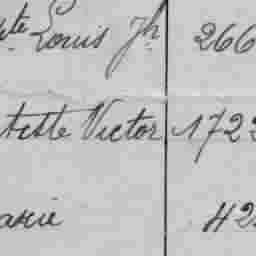 te Louis Jh 266
tiste Victor 1722
arie 42